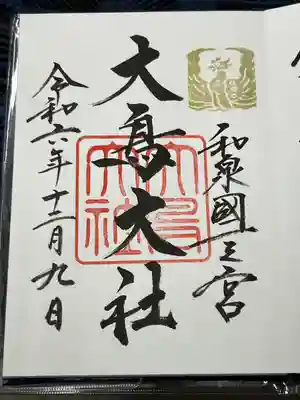 和泉國一之宮
大鳥大社
大鳥
大社
令和六年十二月九日